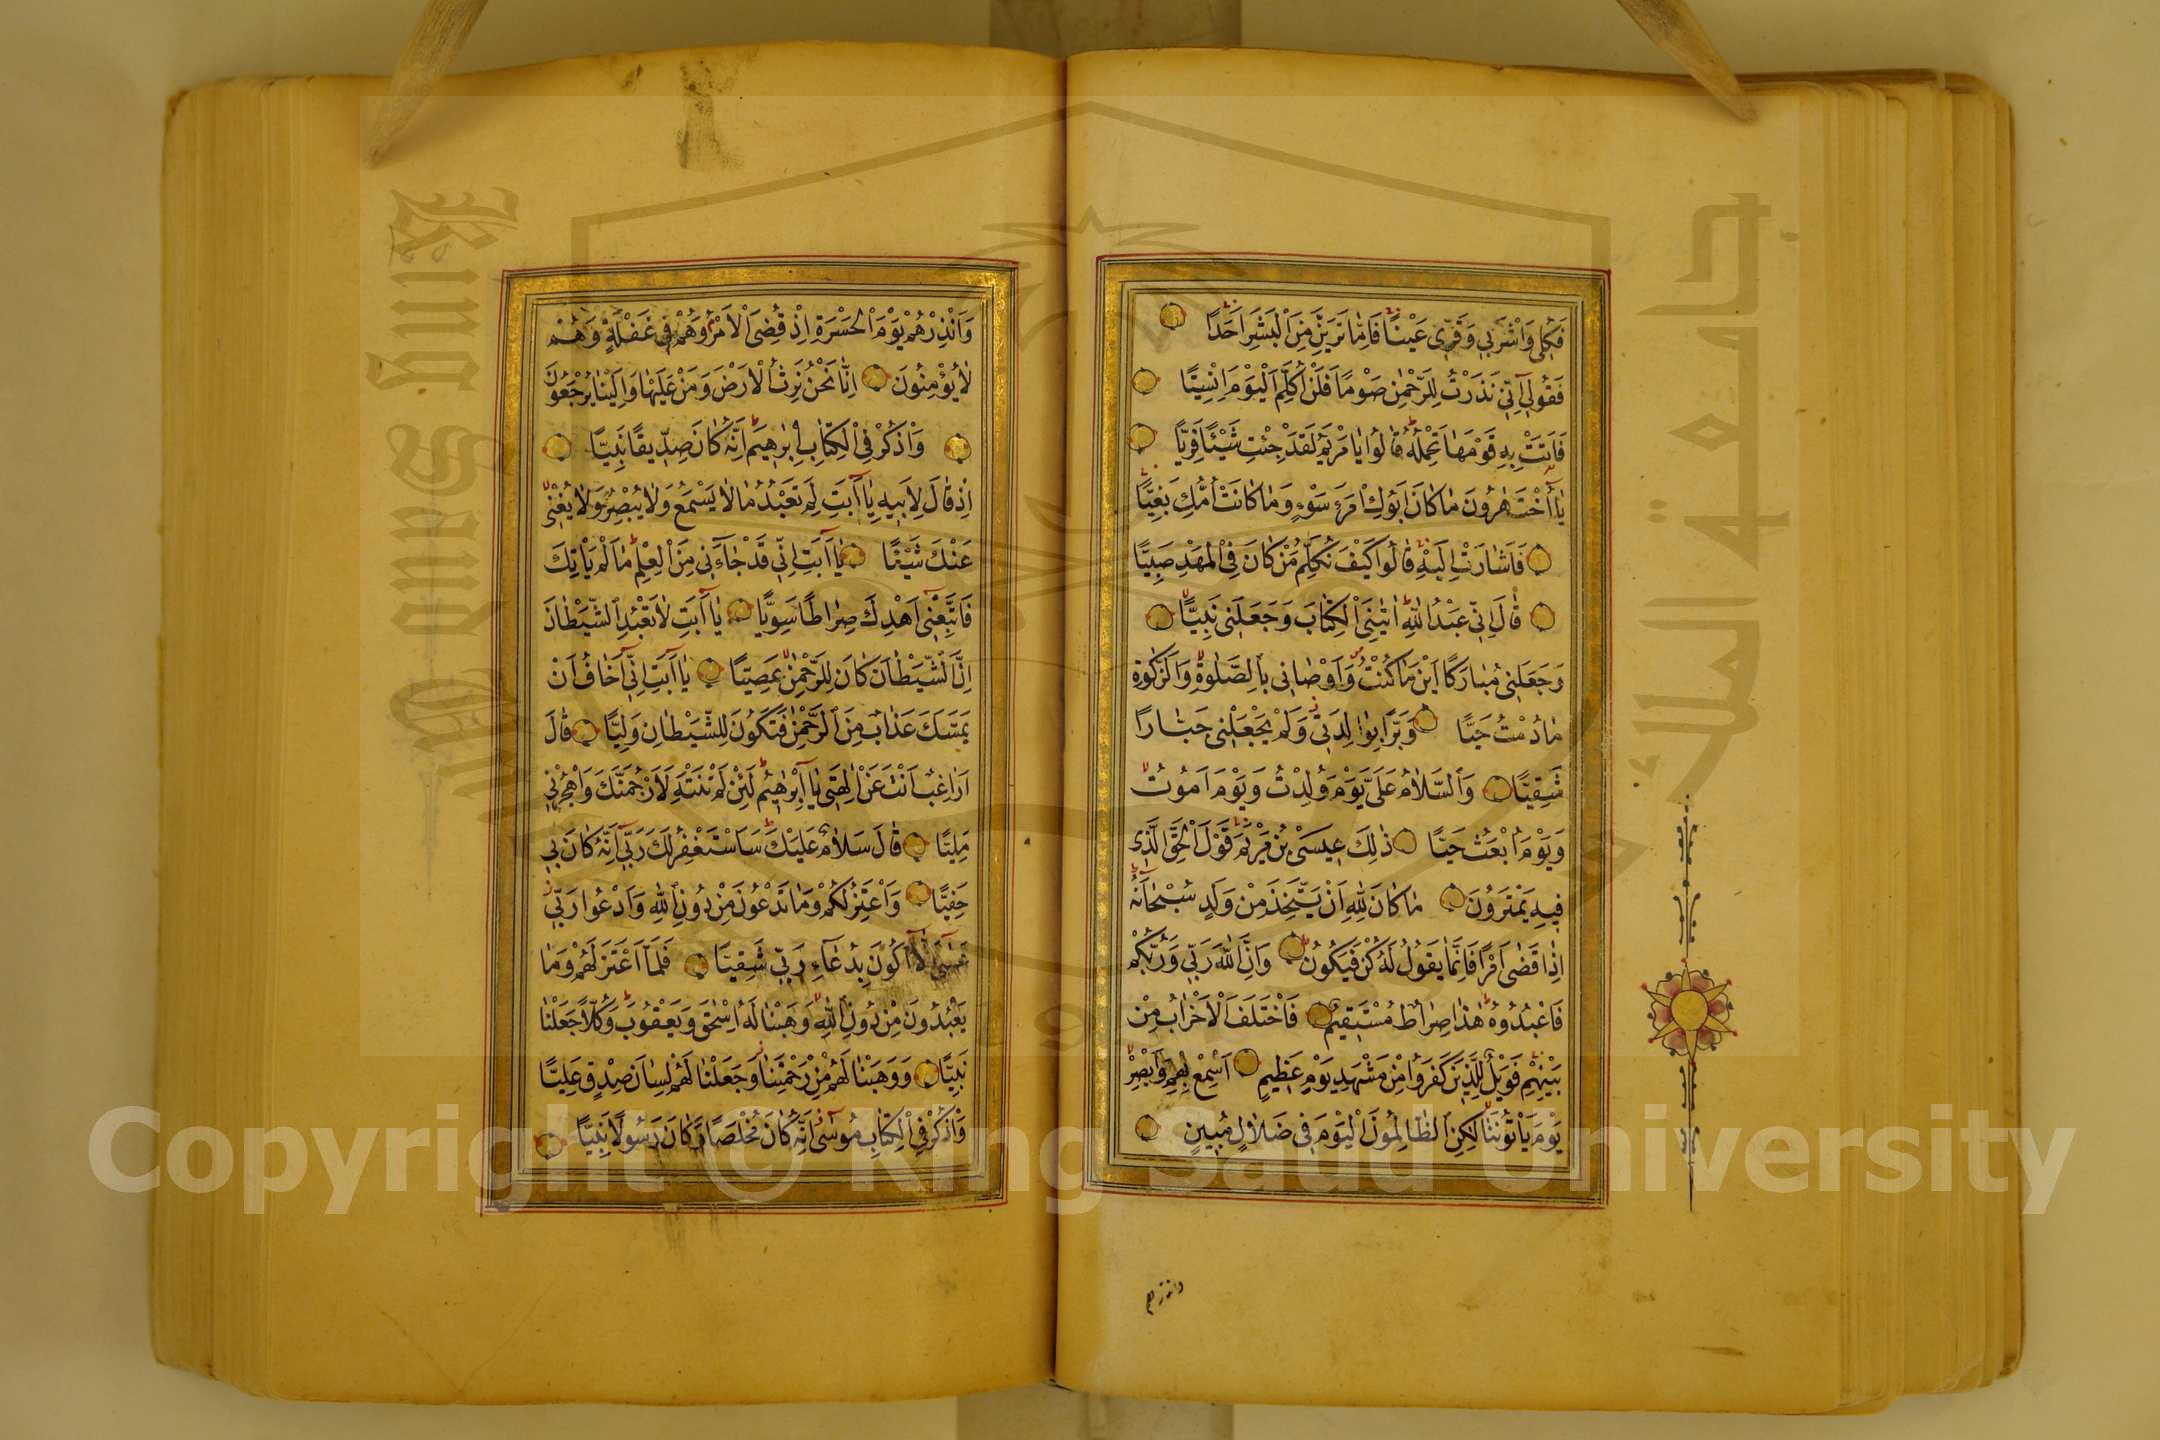 فَكُلِى وَاشْرَبِى وَقَرِّى عَيْنًا فَاِمَّا تَرَيِنَّ مِنَ الْبَشَرِ اَحَدًا
فَقُولِى اِنِّى نَذَرْتُ لِلرَّحْمٰنِ صَوْمًا فَلَنْ اُكَلِّمَ الْيَوْمَ اِنْسِيًّا
فَاَتَتْ بِهِ قَوْمَهَا تَحْمِلُهُ قَالُوا يَا مَرْيَمُ لَقَدْ جِئْتِ شَيْئًا فَرِيًّا
يَا اُخْتَ هٰرُونَ مَا كَانَ اَبُوكِ امْرَءَ سَوْءٍ وَمَا كَانَتْ اُمُّكِ بَغِيًّا
فَاَشَارَتْ اِلَيْهِ قَالُوا كَيْفَ نُكَلِّمُ مَنْ كَانَ فِى الْمَهْدِ صَبِيًّا
قَالَ اِنِّى عَبْدُ اللّٰهِ اٰتٰينِىَ الْكِتَابَ وَجَعَلَنِى نَبِيًّا
وَجَعَلَنِى مُبَارَكًا اَيْنَ مَا كُنْتُ وَاَوْصَانِى بِالصَّلٰوةِ وَالزَّكٰوةِ
مَا دُمْتُ حَيًّا وَبَرًّا بِوَالِدَتِى وَلَمْ يَجْعَلْنِى جَبَّارًا
شَقِيًّا وَالسَّلَامُ عَلَىَّ يَوْمَ وُلِدْتُ وَيَوْمَ اَمُوتُ
وَيَوْمَ اُبْعَثُ حَيًّا ذٰلِكَ عِيسَى بْنُ مَرْيَمَ قَوْلَ الْحَقِّ الَّذِى
فِيهِ يَمْتَرُونَ مَا كَانَ لِلّٰهِ اَنْ يَتَّخِذَ مِنْ وَلَدٍ سُبْحَانَهُ
اِذَا قَضٰى اَمْرًا فَاِنَّمَا يَقُولُ لَهُ كُنْ فَيَكُونُ وَاِنَّ اللّٰهَ رَبِّى وَرَبُّكُمْ
فَاعْبُدُوهُ هٰذَا صِرَاطٌ مُسْتَقِيمٌ فَاخْتَلَفَ الْاَحْزَابُ مِنْ
بَيْنِهِمْ فَوَيْلٌ لِلَّذِينَ كَفَرُوا مِنْ مَشْهَدِ يَوْمٍ عَظِيمٍ اَسْمِعْ بِهِمْ وَاَبْصِرْ
يَوْمَ يَاْتُونَنَا لٰكِنِ الظَّالِمُونَ الْيَوْمَ فِى ضَلَالٍ مُبِينٍ
وَاَنْذِرْهُمْ يَوْمَ الْحَسْرَةِ اِذْ قُضِىَ الْاَمْرُ وَهُمْ فِى غَفْلَةٍ وَهُمْ
لَا يُؤْمِنُونَ اِنَّا نَحْنُ نَرِثُ الْاَرْضَ وَمَنْ عَلَيْهَا وَاِلَيْنَا يُرْجَعُونَ
وَاذْكُرْ فِى الْكِتَابِ اِبْرٰهِيمَ اِنَّهُ كَانَ صِدِّيقًا نَبِيًّا
اِذْ قَالَ لِاَبِيهِ يَا اَبَتِ لِمَ تَعْبُدُ مَا لَا يَسْمَعُ وَلَا يُبْصِرُ وَلَا يُغْنِى
عَنْكَ شَيْئًا يَا اَبَتِ اِنِّى قَدْ جَاءَنِى مِنَ الْعِلْمِ مَا لَمْ يَاْتِكَ
فَاتَّبِعْنِى اَهْدِكَ صِرَاطًا سَوِيًّا يَا اَبَتِ لَا تَعْبُدِ الشَّيْطَانَ
اِنَّ الشَّيْطَانَ كَانَ لِلرَّحْمٰنِ عَصِيًّا يَا اَبَتِ اِنِّى اَخَافُ اَنْ
يَمَسَّكَ عَذَابٌ مِنَ الرَّحْمٰنِ فَتَكُونَ لِلشَّيْطَانِ وَلِيًّا قَالَ
اَرَاغِبٌ اَنْتَ عَنْ اٰلِهَتِى يَا اِبْرٰهِيمُ لَئِنْ لَمْ تَنْتَهِ لَاَرْجُمَنَّكَ وَاهْجُرْنِى
مَلِيًّا قَالَ سَلَامٌ عَلَيْكَ سَاَسْتَغْفِرُ لَكَ رَبِّى اِنَّهُ كَانَ بِى
حَفِيًّا وَاَعْتَزِلُكُمْ وَمَا تَدْعُونَ مِنْ دُونِ اللّٰهِ وَاَدْعُوا رَبِّى
عَسٰى اَلَّا اَكُونَ بِدُعَاءِ رَبِّى شَقِيًّا فَلَمَّا اعْتَزَلَهُمْ وَمَا
يَعْبُدُونَ مِنْ دُونِ اللّٰهِ وَهَبْنَا لَهُ اِسْحٰقَ وَيَعْقُوبَ وَكُلًّا جَعَلْنَا
نَبِيًّا وَوَهَبْنَا لَهُمْ مِنْ رَحْمَتِنَا وَجَعَلْنَا لَهُمْ لِسَانَ صِدْقٍ عَلِيًّا
وَاذْكُرْ فِى الْكِتَابِ مُوسٰى اِنَّهُ كَانَ مُخْلَصًا وَكَانَ رَسُولًا نَبِيًّا
وانذرهم
King Saud University
جامعة الملك سعود
Copyright © King Saud University